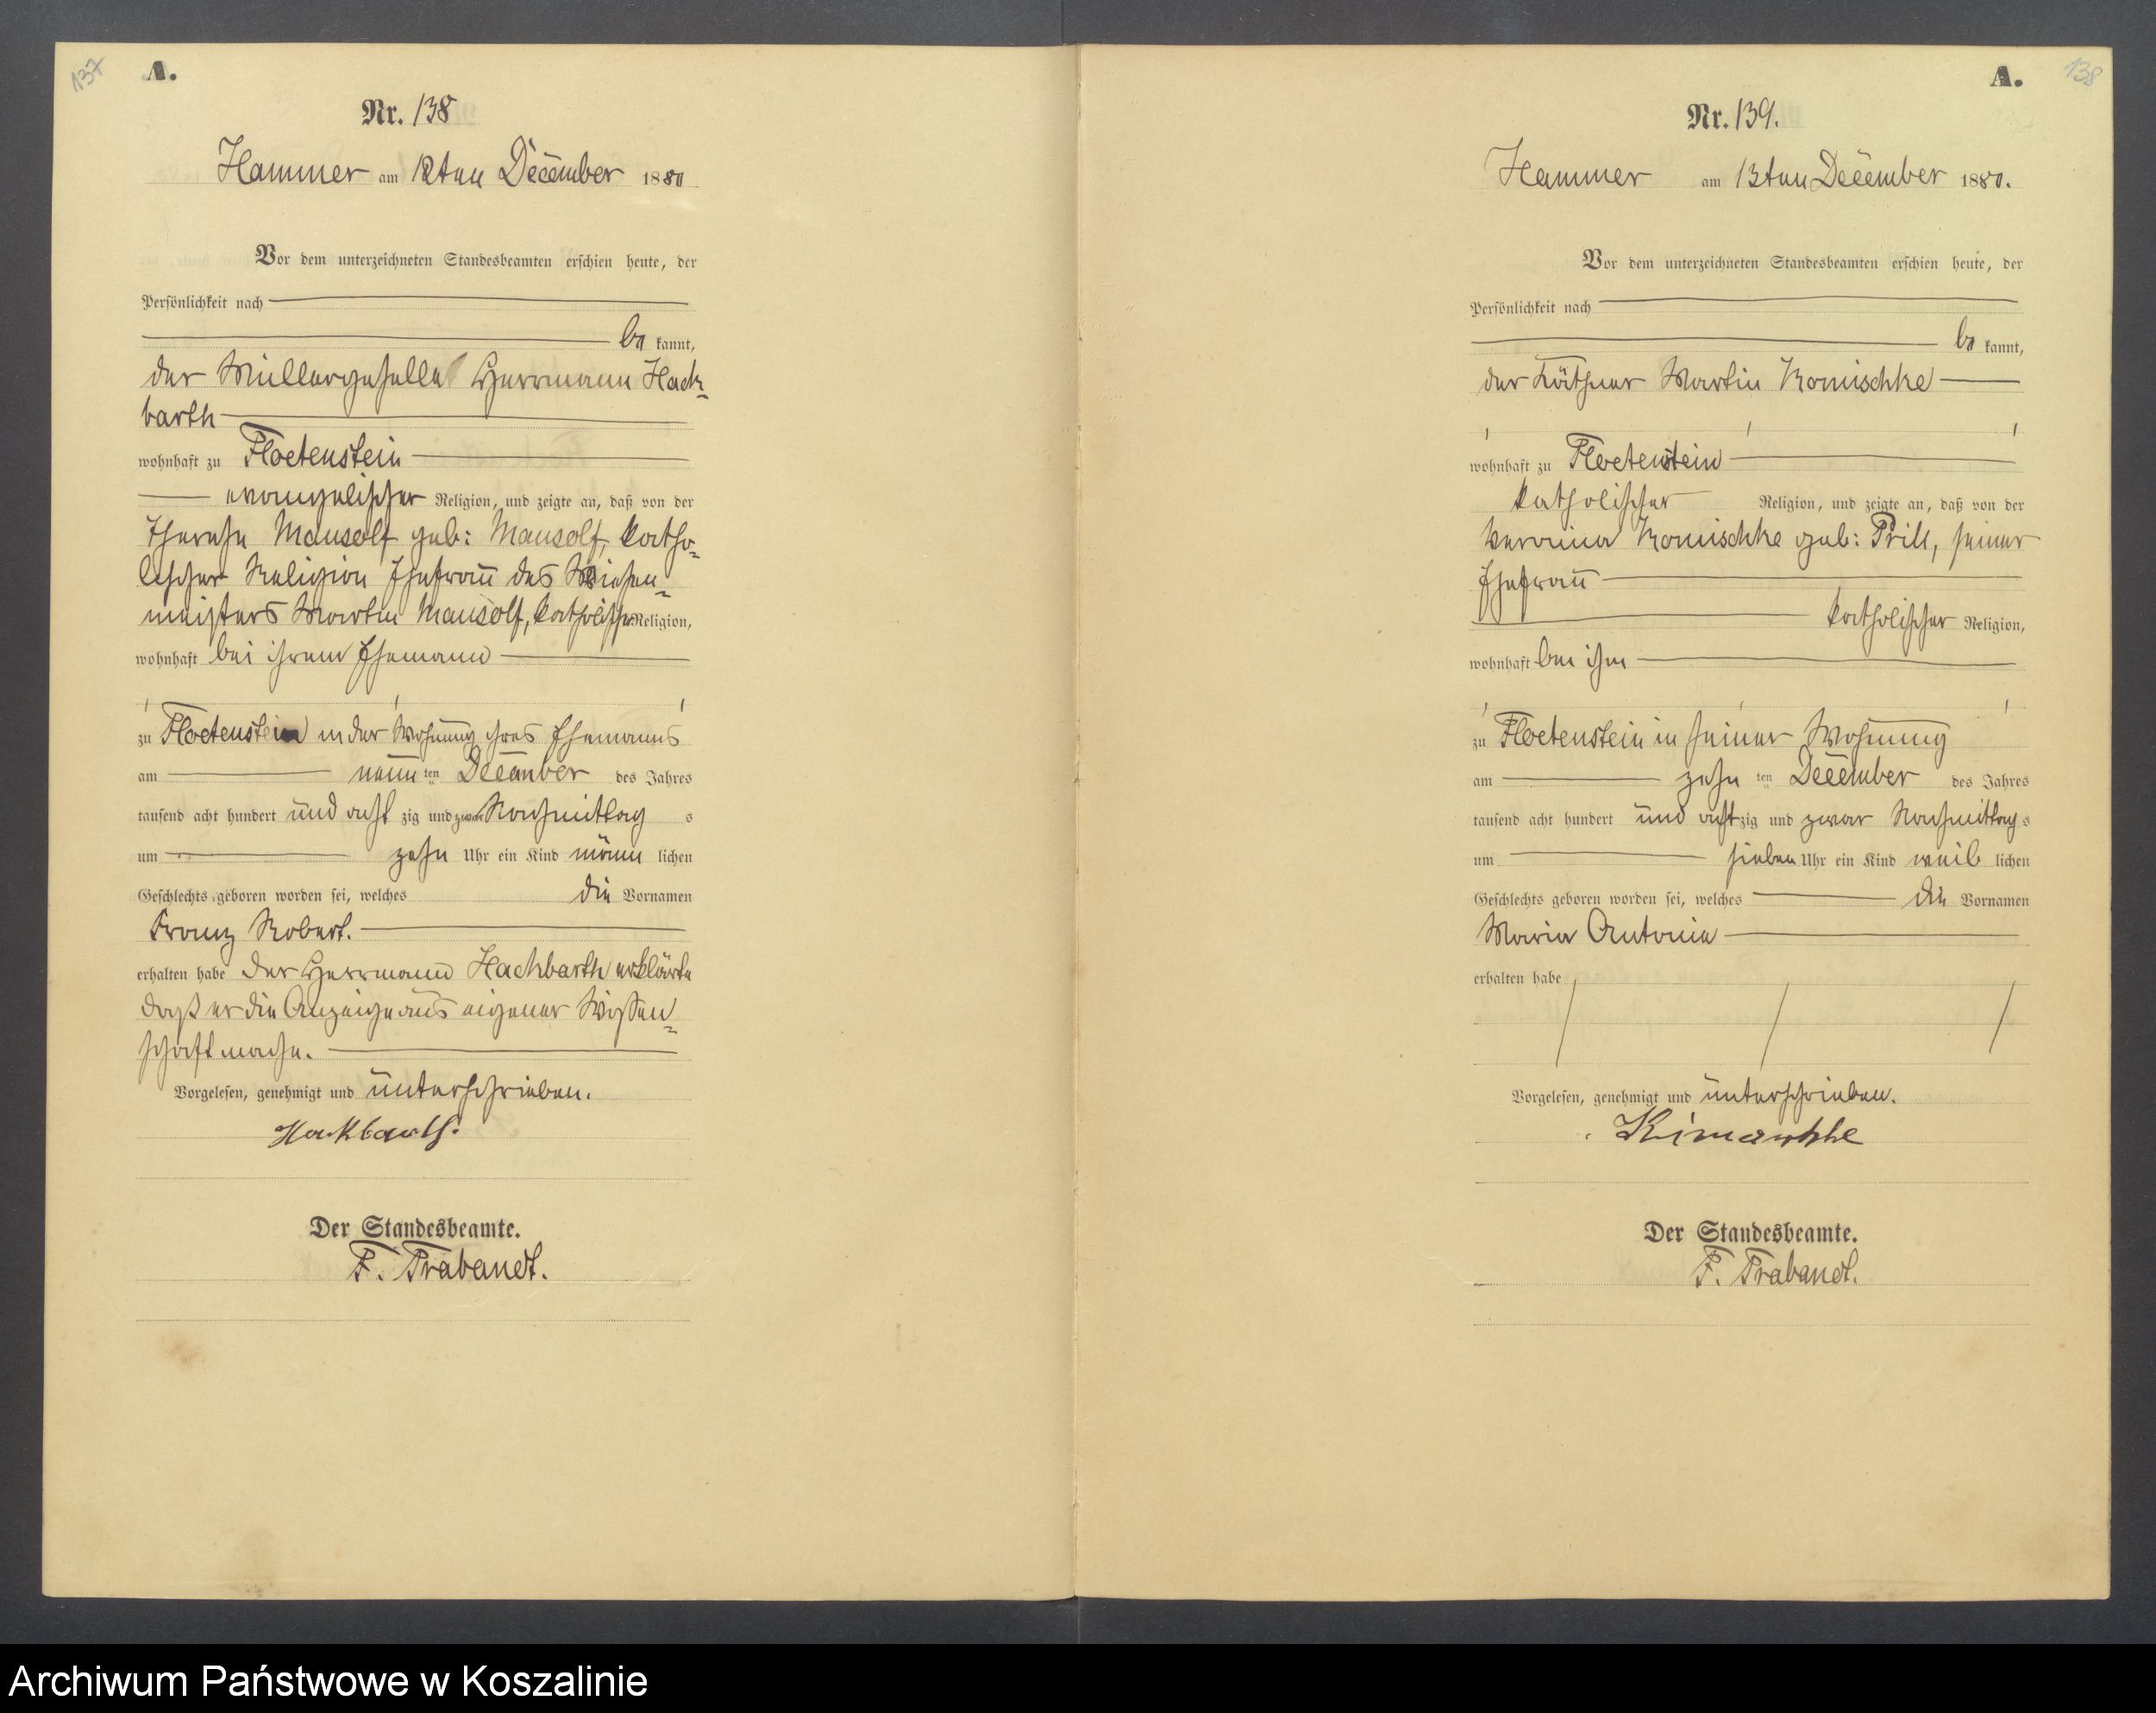 137
A.
Nr. 138
Hammer am 12ten December 1880
Vor dem unterzeichneten Standesbeamten erschien heute, der
Persönlichkeit nach
be kannt,
der Müllergeselle Herrmann Hack-
barth
wohnhaft zu Floetenstein
evangelischer Religion, und zeigte an, daß von der
Therese Mausolf geb: Mausolf, katho-
lischer Religion Ehefrau des Wiesen-
meisters Martin Mausolf, katholischer Religion,
wohnhaft bei ihrem Ehemann
zu Floetenstein in der Wohnung ihres Ehemanns
am neun ten December des Jahres
tausend acht hundert und acht zig und zwar Nachmittag s
um zehn Uhr ein Kind männ lichen
Geschlechts geboren worden sei, welches die Vornamen
Franz Robert.
erhalten habe der Herrmann Hackbarth erklärte
daß er die Anzeige aus eigener Wissen-
schaft mache.
Vorgelesen, genehmigt und unterschrieben.
Hackbarth.
Der Standesbeamte.
F. Trabandt.
138
A.
Nr. 139.
Hammer am 13ten December 1880.
Vor dem unterzeichneten Standesbeamten erschien heute, der
Persönlichkeit nach
be kannt,
der Käthner Martin Komischke
wohnhaft zu Floetenstein
katholischer Religion, und zeigte an, daß von der
Komischke geb: Prill, seiner
Ehefrau
katholischer Religion,
wohnhaft bei ihm
zu Floetenstein in seiner Wohnung
am zehn ten December des Jahres
tausend acht hundert und acht zig und zwar Nachmittag s
um sieben Uhr ein Kind weib lichen
Geschlechts geboren worden sei, welches die Vornamen
Maria Antonie
erhalten habe
Vorgelesen, genehmigt und unterschrieben.
Der Standesbeamte.
F. Trabandt.
Archiwum Państwowe w Koszalinie